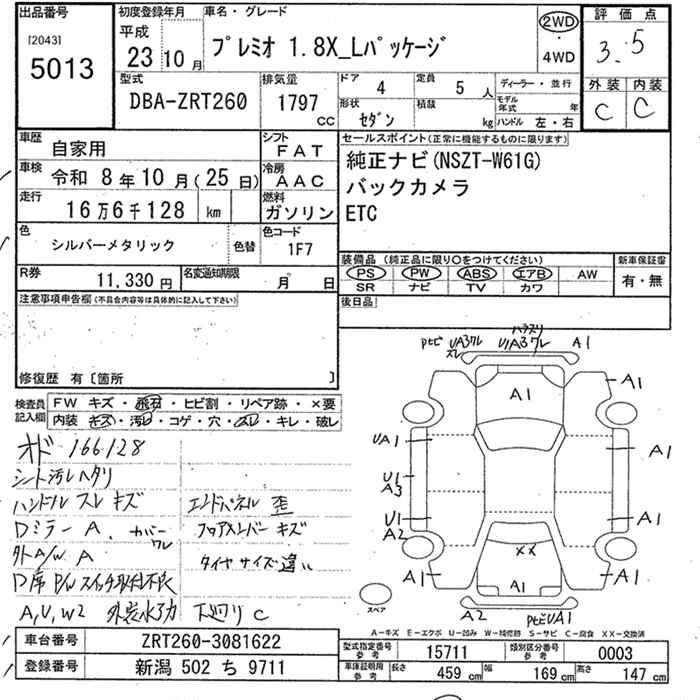 出品番号
[2043]
5013
初度登録年月
平成
23 10 月
車名・グレード
プレミオ 1.8X_Lパッケージ
2WD
・
4WD
評価点
3.5
外装 内装
C C
型式
DBA-ZRT260
排気量
1797 CC
ドア 4
定員 5 人
形状 セダン
積載 kg
ディーラー・並行
モデル年式 年
ハンドル 左・右
車歴 自家用
シフト FAT
車検 令和 8年10月(25日)
冷房 AAC
走行 16万6千128 km
燃料 ガソリン
色 シルバーメタリック
色替
色コード 1F7
R券 11,330円
名変通知期限 月 日
セールスポイント(正常に機能するものに限ります)
純正ナビ(NSZT-W61G)
バックカメラ
ETC
装備品 (純正品に限り○をつけてください)
PS PW ABS エアB AW
SR ナビ TV カワ
新車保証書
有・無
後日品
注意事項申告欄(不具合内容等は具体的に記入して下さい)
修復歴 有〔箇所 〕
検査員記入欄
FW キズ・飛石・ヒビ割・リペア跡・×要
内装 キズ・汚レ・コゲ・穴・スレ・キレ・破レ
オド 166128
シート汚レ ヘタリ
ハンドル スレ キズ
Dミラー A. カバーワレ
外A/W A
D席 P/W スイッチ取付不良
A,U,W2
エンドパネル 歪
フロアメンバー キズ
タイヤサイズ違い
下廻り C
PtビUA3ワレ
スレ
ハズリ
U1A3ワレ
A1
A1
A1
UA1
A1
U1
A3
U1
A2
A1
XX
A1
A1
A1
A2
PtビUA1
スペア
A-キズ E-エクボ U-凹み W-補修跡 S-サビ C-腐食 XX-交換済
車台番号 ZRT260-3081622
登録番号 新潟 502 ち 9711
型式指定番号 参考 15711
類別区分番号 参考 0003
車庫証明用 参考 長さ 459 cm 幅 169 cm 高さ 147 cm